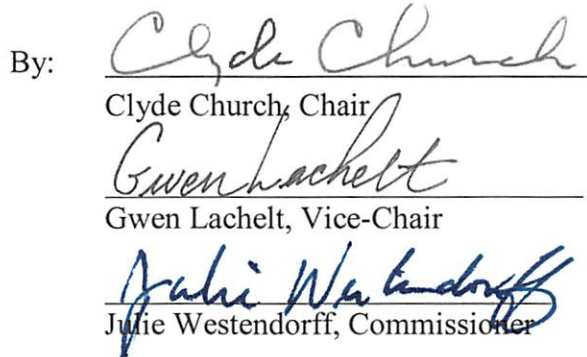 By: Clyde Church
Clyde Church, Chair
Gwen Lachelt
Gwen Lachelt, Vice-Chair
Julie Westendorff
Julie Westendorff, Commissioner